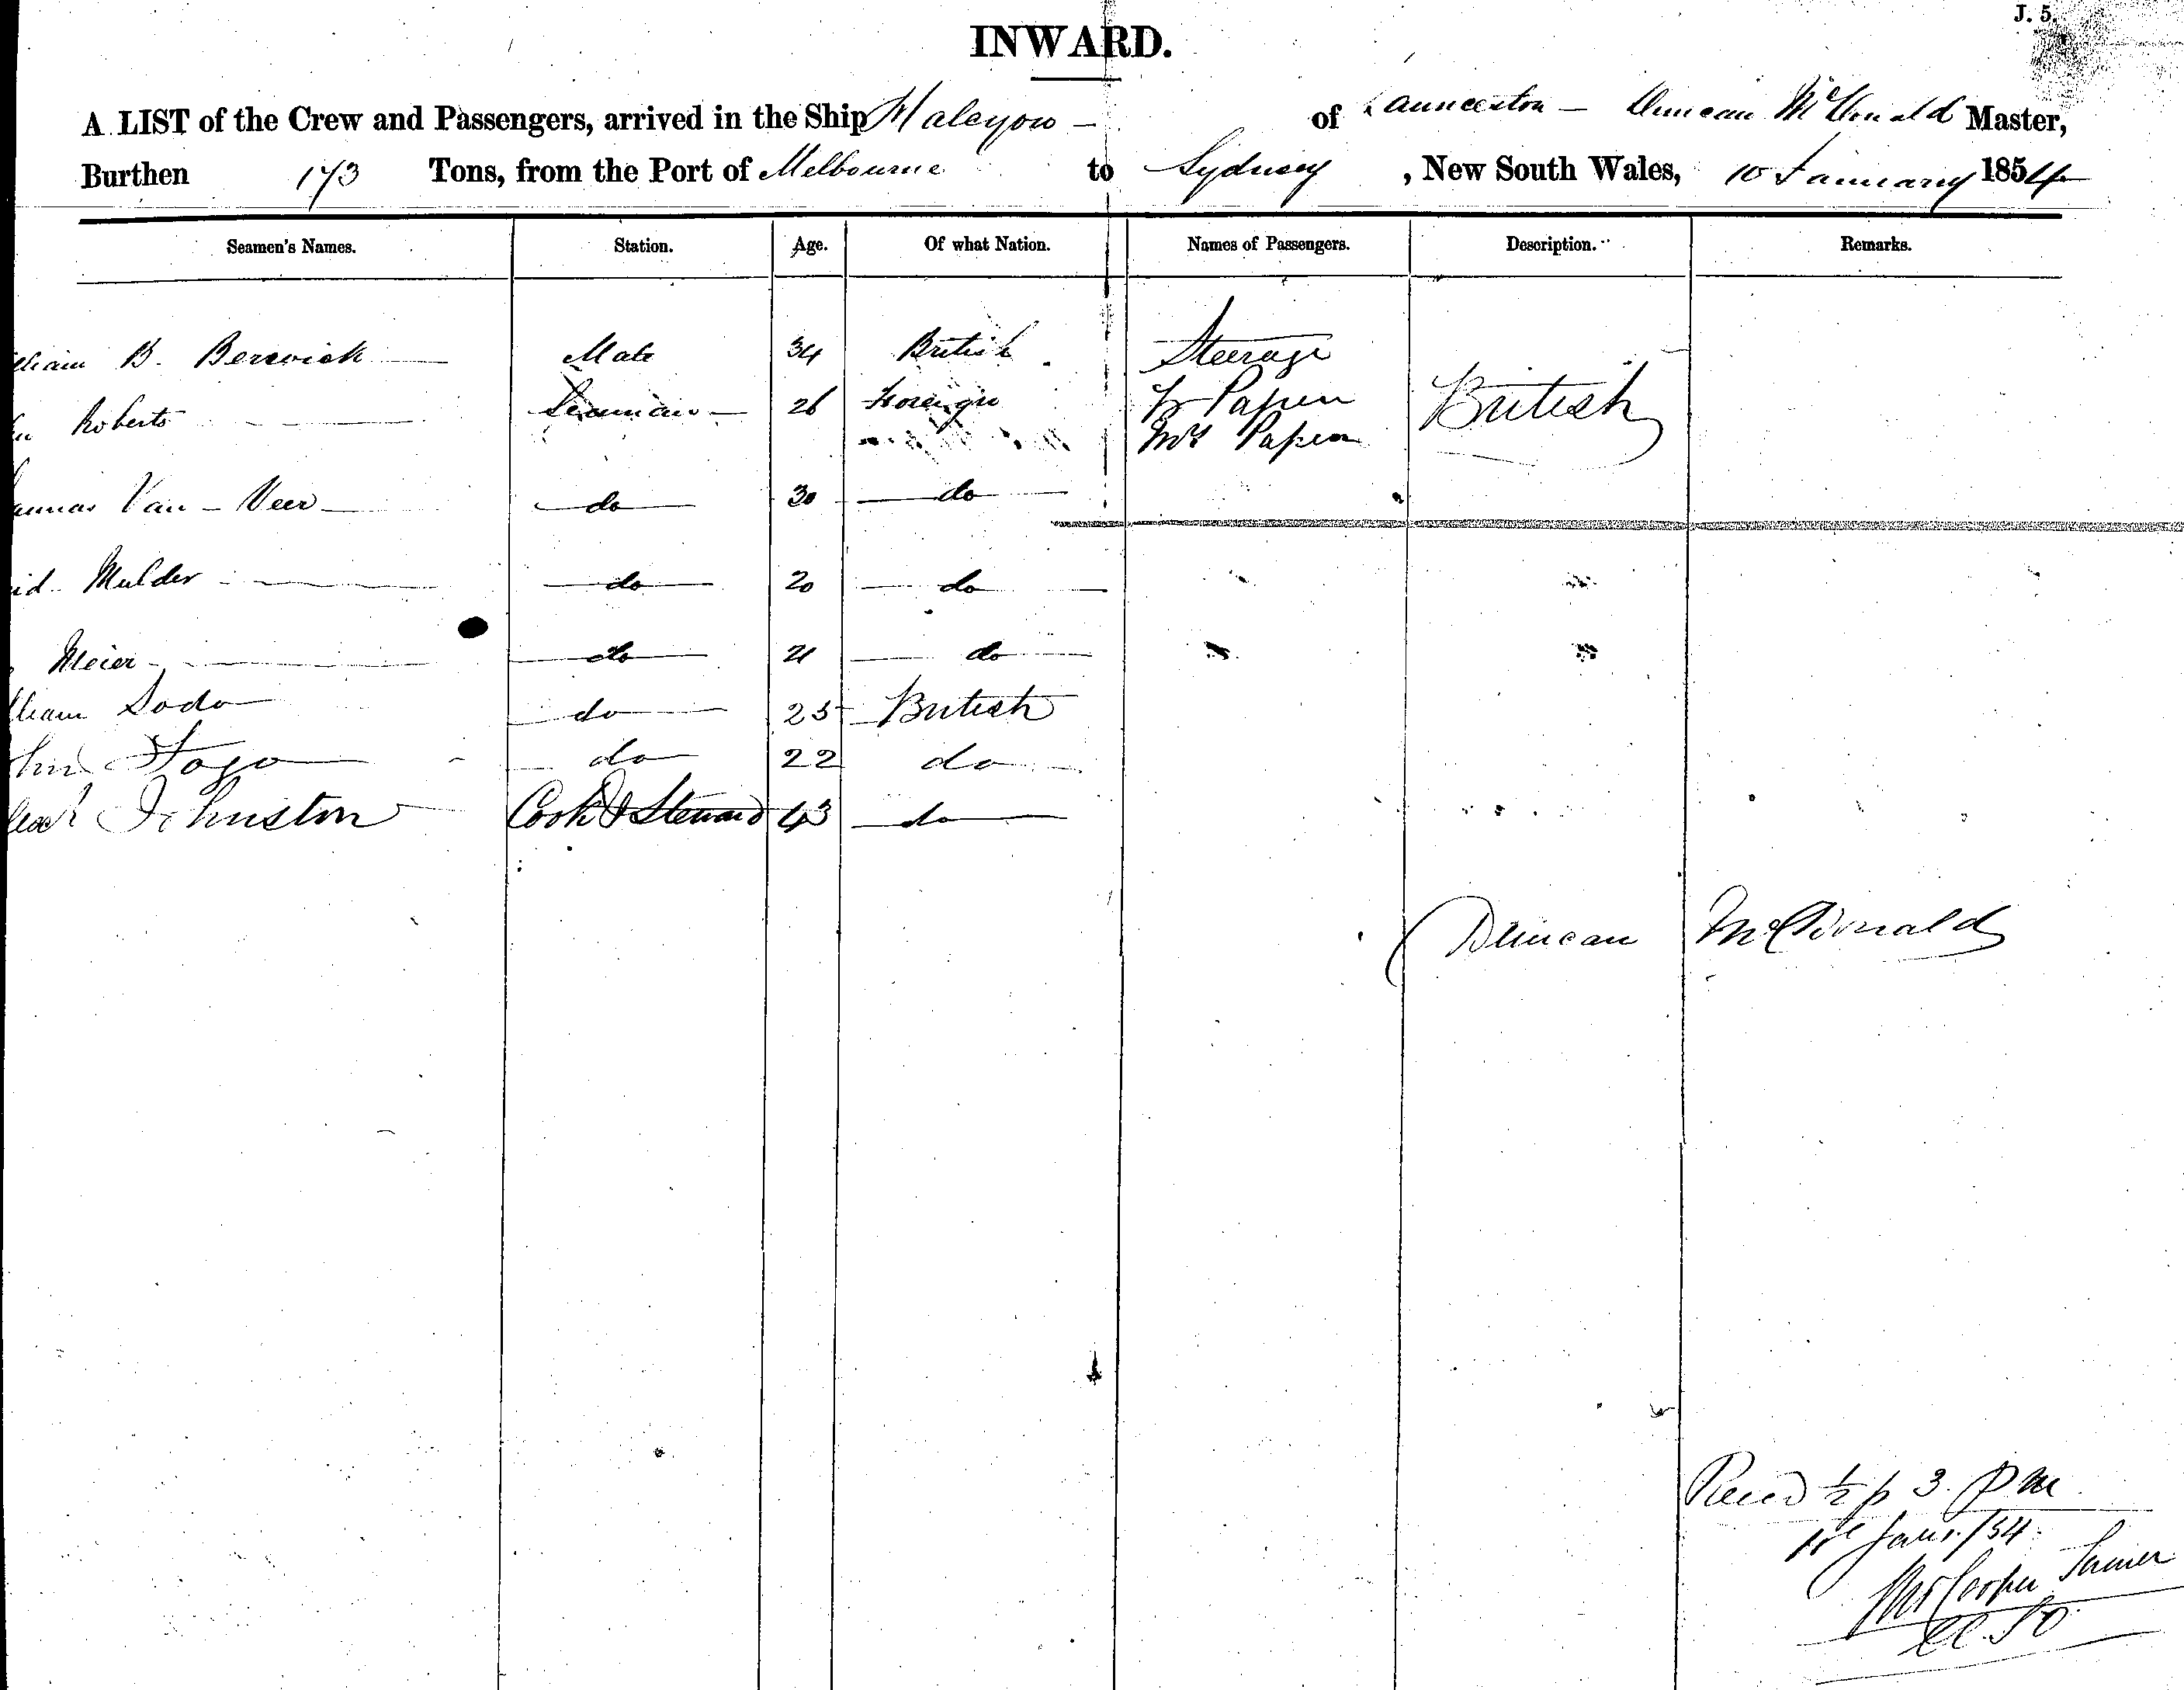 J. 5.
INWARD.
A LIST of the Crew and Passengers, arrived in the Ship Halcyon — of Launceston — Duncan McDonald Master,
Burthen 173 Tons, from the Port of Melbourne to Sydney, New South Wales, 10 January 1854
Seamen's Names. Station. Age. Of what Nation. Names of Passengers. Description. Remarks.
lliam B. Berwick Mate 34 British Steerage
Roberts Seaman 26 Foreign Papen British
Mrs Papen
annas Van-Veer do 30 do
id Mulder do 20 do
Meier do 21 do
lliam Sodo do 25 British
hn Fogo do 22 do
Johnston Cook & Steward 43 do
Duncan McDonald
Recd ½ p 3. PM
Jany /54
Cooper Turner